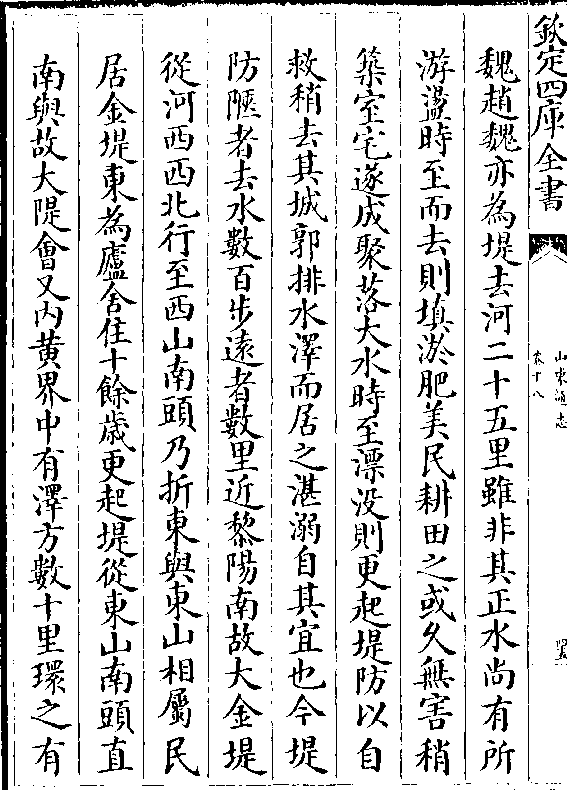 欽定四庫全書
山東通志
卷十八
魏趙魏亦為堤去河二十五里雖非其正水尚有所
游盪時至而去則填淤肥美民耕田之或久無害稍
築室宅遂成聚落大水時至漂没則更起堤防以自
救稍去其城郭排水澤而居之湛溺自其宜也今堤
防陿者去水數百步遠者數里近黎陽南故大金堤
從河西西北行至西山南頭乃折東與東山相屬民
居金堤東為廬舍住十餘歲更起堤從東山南頭直
南與故大隄會又内黄界中有澤方數十里環之有